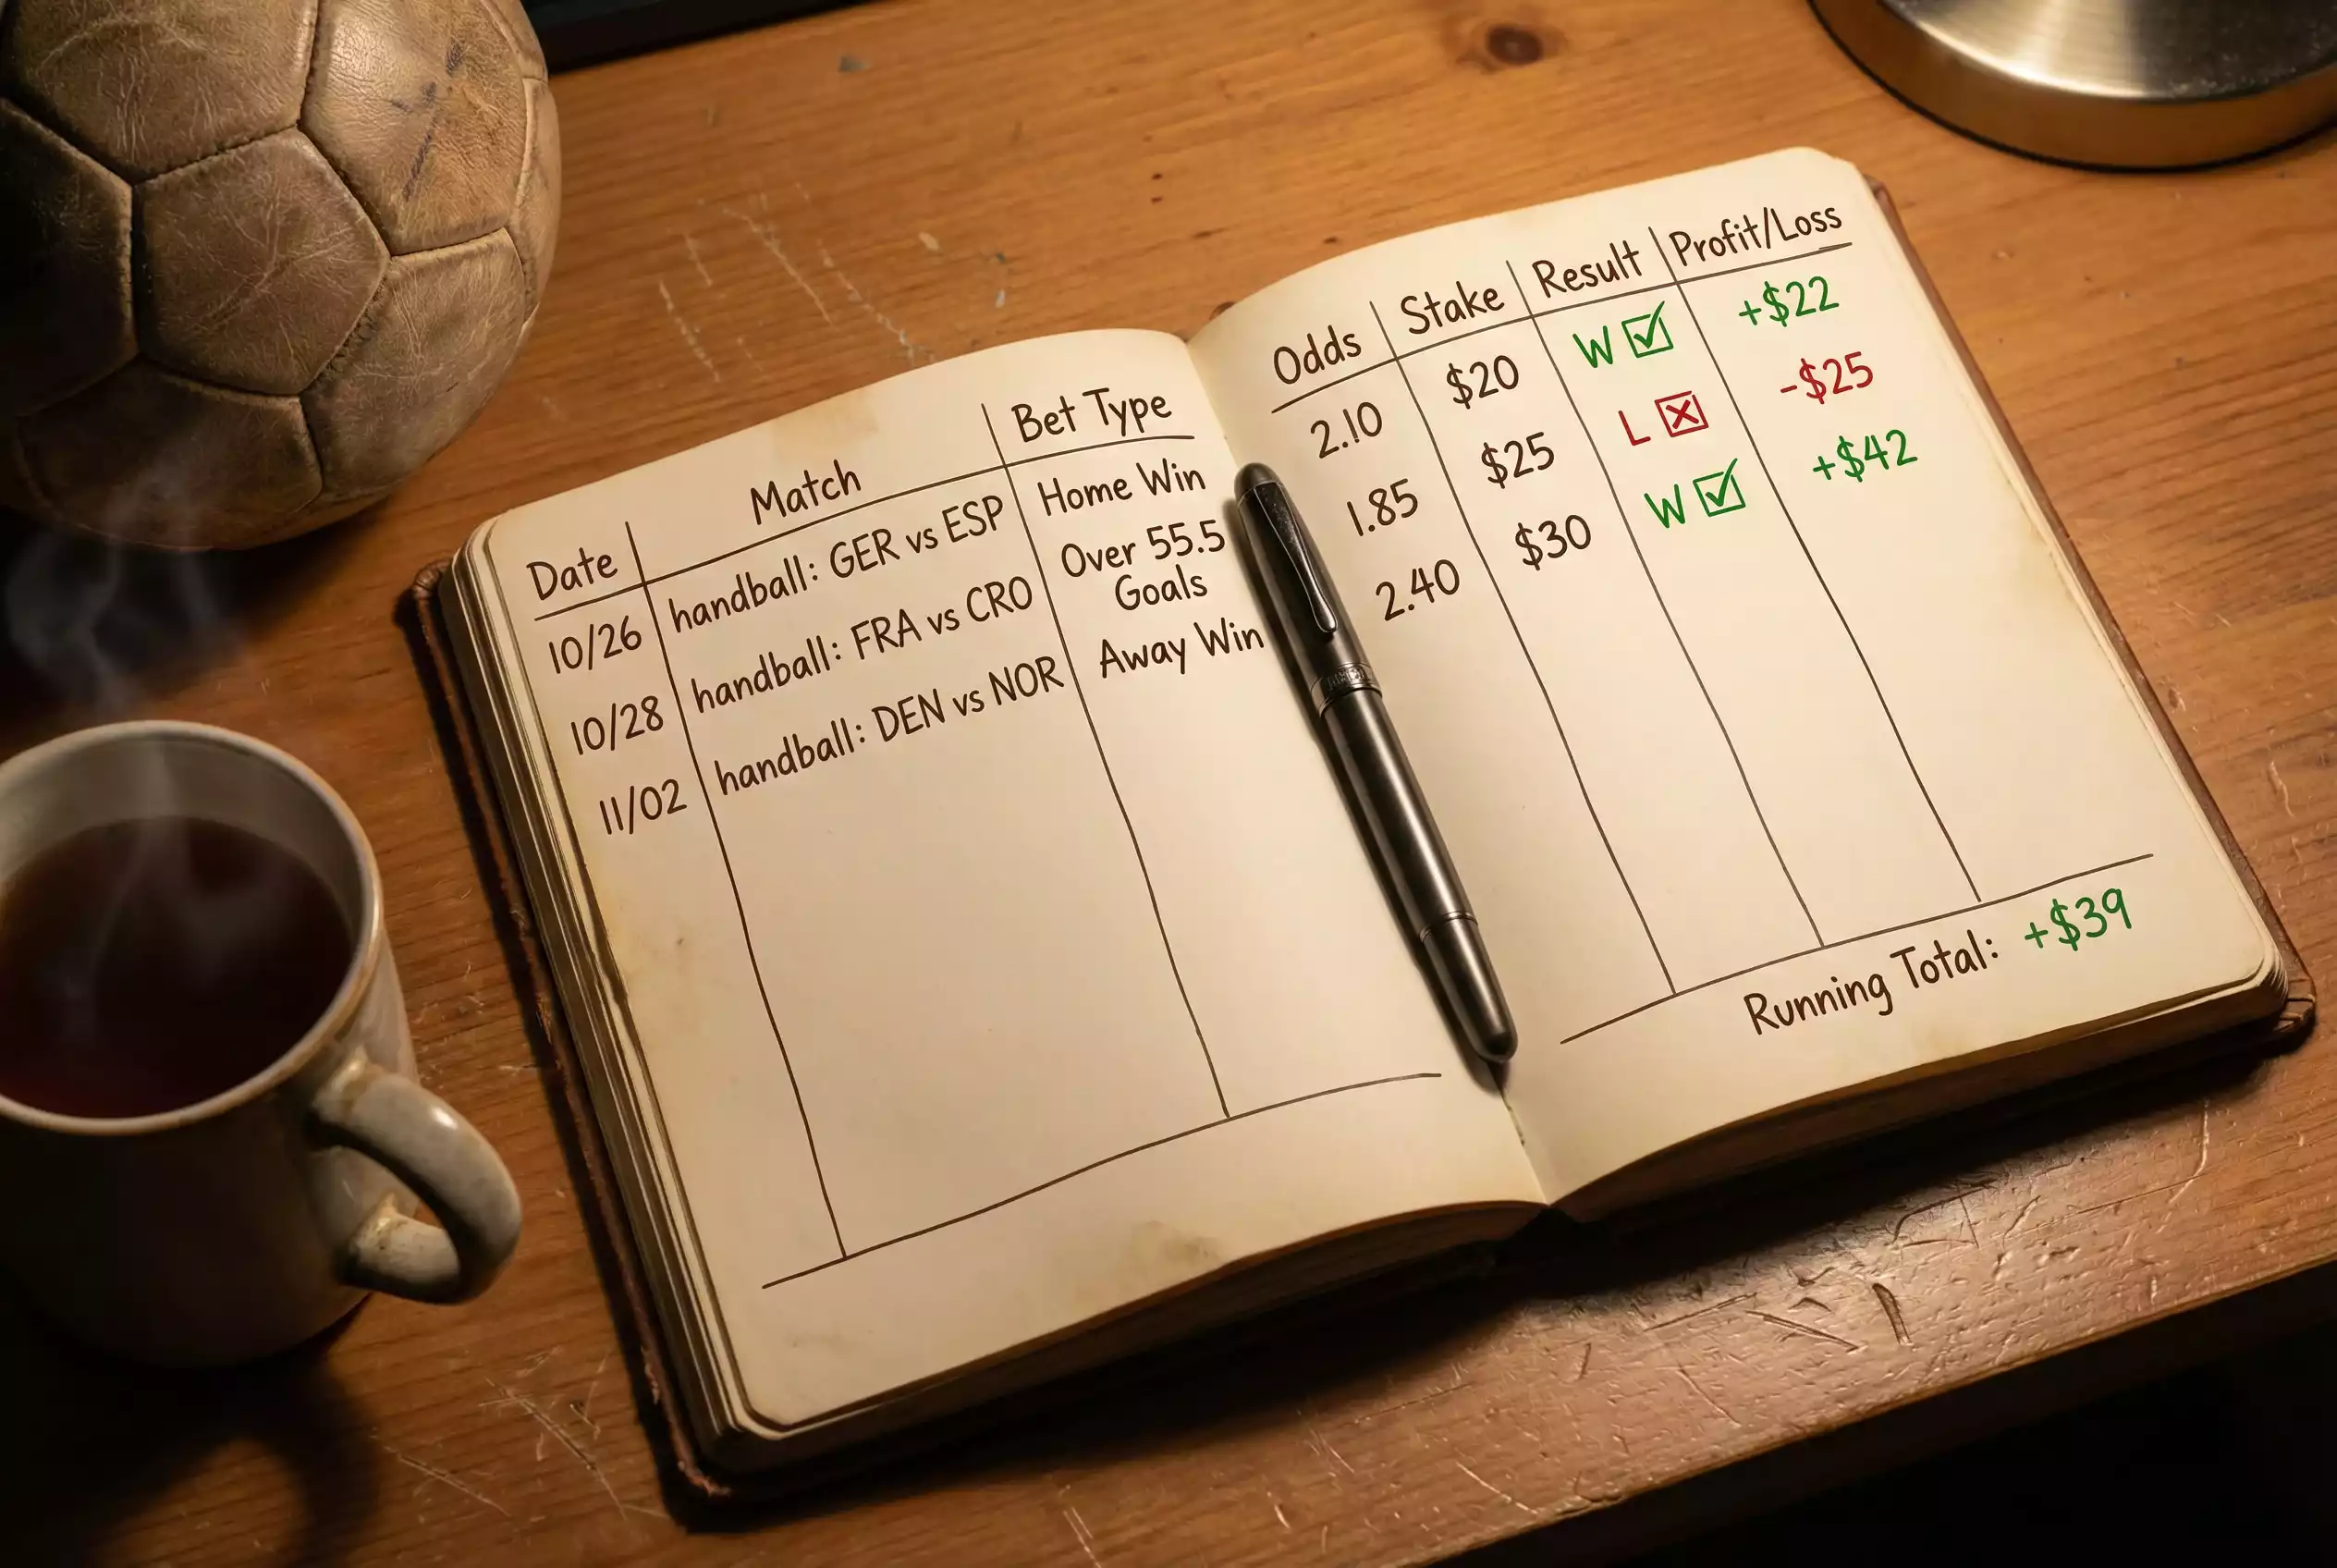 Date Match Bet Type Odds Stake Result Profit/Loss
10/26 handball: GER vs ESP Home Win 2.10 $20 W +$22
10/28 handball: FRA vs CRO Over 55.5 Goals 1.85 $25 L -$25
11/02 handball: DEN vs NOR Away Win 2.40 $30 W +$42
Running Total: +$39